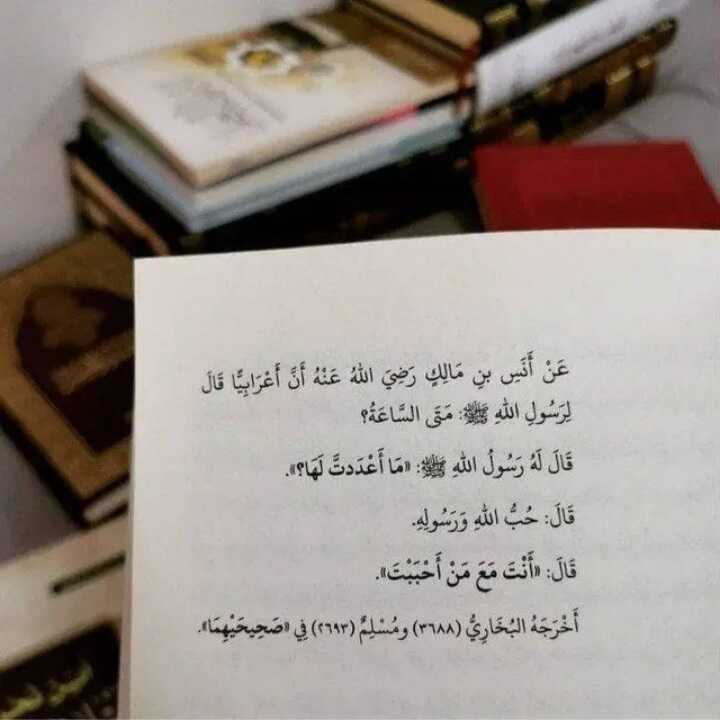 عَنْ أَنَسِ بنِ مَالِكٍ رَضِيَ اللهُ عَنْهُ أَنَّ أَعْرَابِيًّا قَالَ
لِرَسُولِ اللهِ ﷺ: مَتَى السَّاعَةُ؟
قَالَ لَهُ رَسُولُ اللهِ ﷺ: «مَا أَعْدَدتَّ لَهَا؟».
قَالَ: حُبُّ اللهِ وَرَسُولِهِ.
قَالَ: «أَنْتَ مَعَ مَنْ أَحْبَبْتَ».
أَخْرَجَهُ البُخَارِيُّ (٣٦٨٨) ومُسْلِمٌ (٢٦٩٣) فِي «صَحِيحَيْهِمَا».